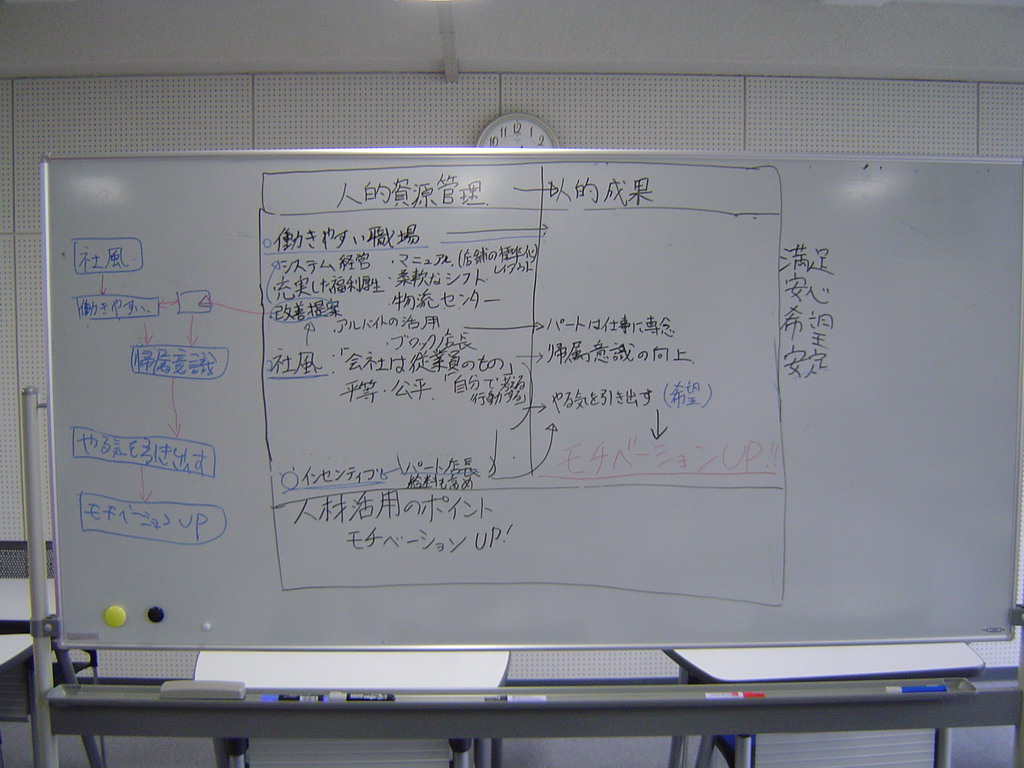 10 11 12 1 2
人的資源管理 → 人的成果
社風
働きやすい
帰属意識
やる気を引き出す
モチベーションUP
○働きやすい職場
システム経営 ・マニュアル (店舗の標準化
レイアウト
充実した福利厚生 ・柔軟なシフト
改善提案 ・物流センター
・アルバイトの活用 → パートは仕事に専念
・ブロック店長
社風:「会社は従業員のもの」 → 帰属意識の向上
平等・公平 「自分で考える
行動する」
やる気を引き出す (希望)
モチベーションUP!!
○インセンティブ パート店長
給料も高め
人材活用のポイント
モチベーションUP!
満足
安心
希望
安定